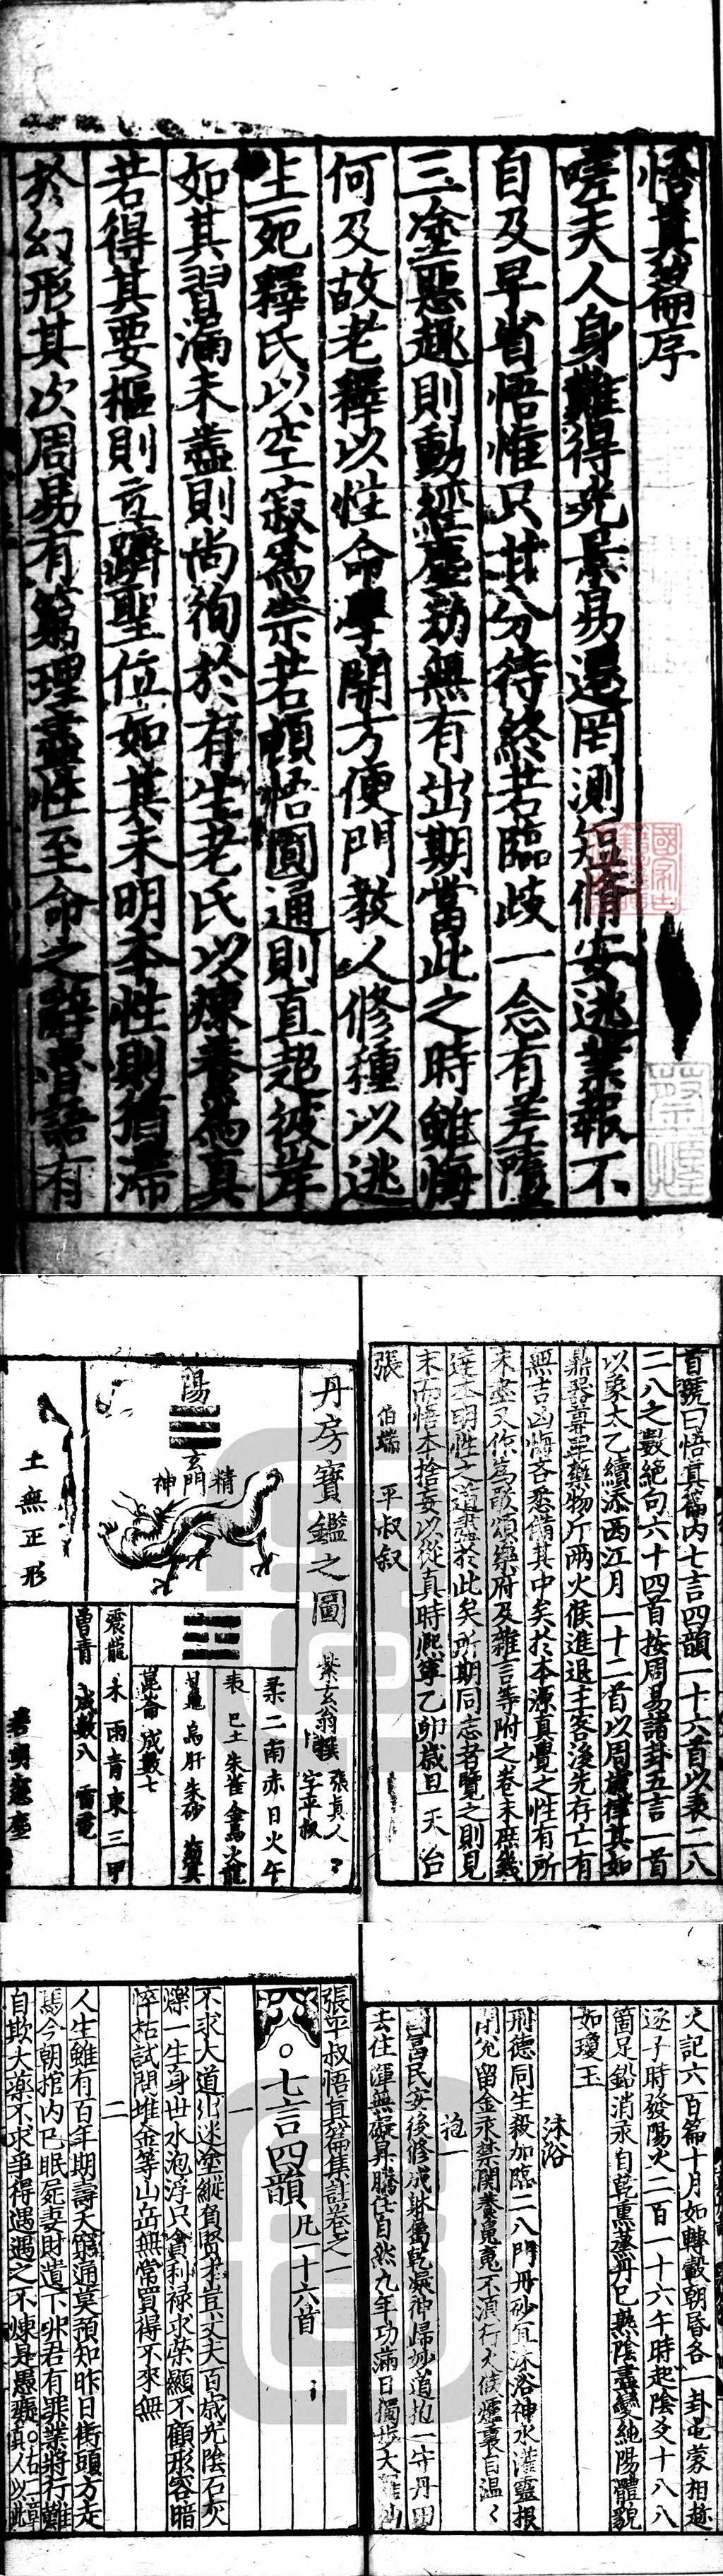 悟真篇序
嗟夫人身難得光景易遷罔測短脩安逃業報不
自及早省悟惟只甘分待終若臨歧一念有差墮
三塗惡趣則動經塵劫無有出期當此之時雖悔
何及故老釋以性命學開方便門教人修種以逃
生死釋氏以空寂爲宗若頓悟圓通則直超彼岸
如其習漏未盡則尚徇於有生老氏以煉養爲真
若得其要樞則立躋聖位如其未明本性則猶滯
於幻形其次周易有窮理盡性至命之辭魯語有
首號曰悟真篇内七言四韻一十六首以表二八
二八之數絕句六十四首按周易諸卦五言一首
以象太乙續添西江月一十二首以周歲律其如
鼎器尊卑藥物斤兩火候進退主客後先存亡有
無吉凶悔吝悉備其中矣於本源真覺之性有所
未盡又作爲歌頌樂府及雜言等附之卷末庶幾
達本明性之道盡於此矣所期同志者覽之則見
末而悟本捨妄以從真時熙寧乙卯歲旦天台
張伯端平叔叙
丹房寶鑑之圖
紫玄翁撰 張真人字平叔
陽
玄門
精
神
柔二南赤日火午
表巳土朱雀金烏火龍
烏肝朱砂
崑崙成數七
震龍木雨青東三甲
曾青成數八雷電
土無正形
火記六百篇十月如轉轂朝昏各一卦屯蒙相趁
逐子時發陽火二百一十六午時起陰爻十八八
箇足鉛消汞自乾熏蒸丹已熟陰盡變純陽體貌
如瓊玉
沐浴
刑德同生殺加臨二八門丹砂宜沐浴神水灌靈根
閉兌留金汞禁關養魄魂不須行火候爐裏自温〻
抱一
國富民安後修成射舊乾凝神歸妙道抱一守丹田
去住渾無礙昇騰任自然九年功滿日獨步大羅仙
張平叔悟真篇集註卷之一
○七言四韻凡一十六首
一
不求大道出迷塗縱負賢才豈丈夫百歲光陰石火
爍一生身世水泡浮只貪利禄求榮顯不顧形容暗
悴枯試問堆金等山岳無常買得不來無
二
人生雖有百年期壽夭窮通莫預知昨日街頭方走
馬今朝棺内已眠屍妻財遺下非君有罪業將行難
自欺大藥不求爭得遇遇之不煉是愚癡○右二章真人以此